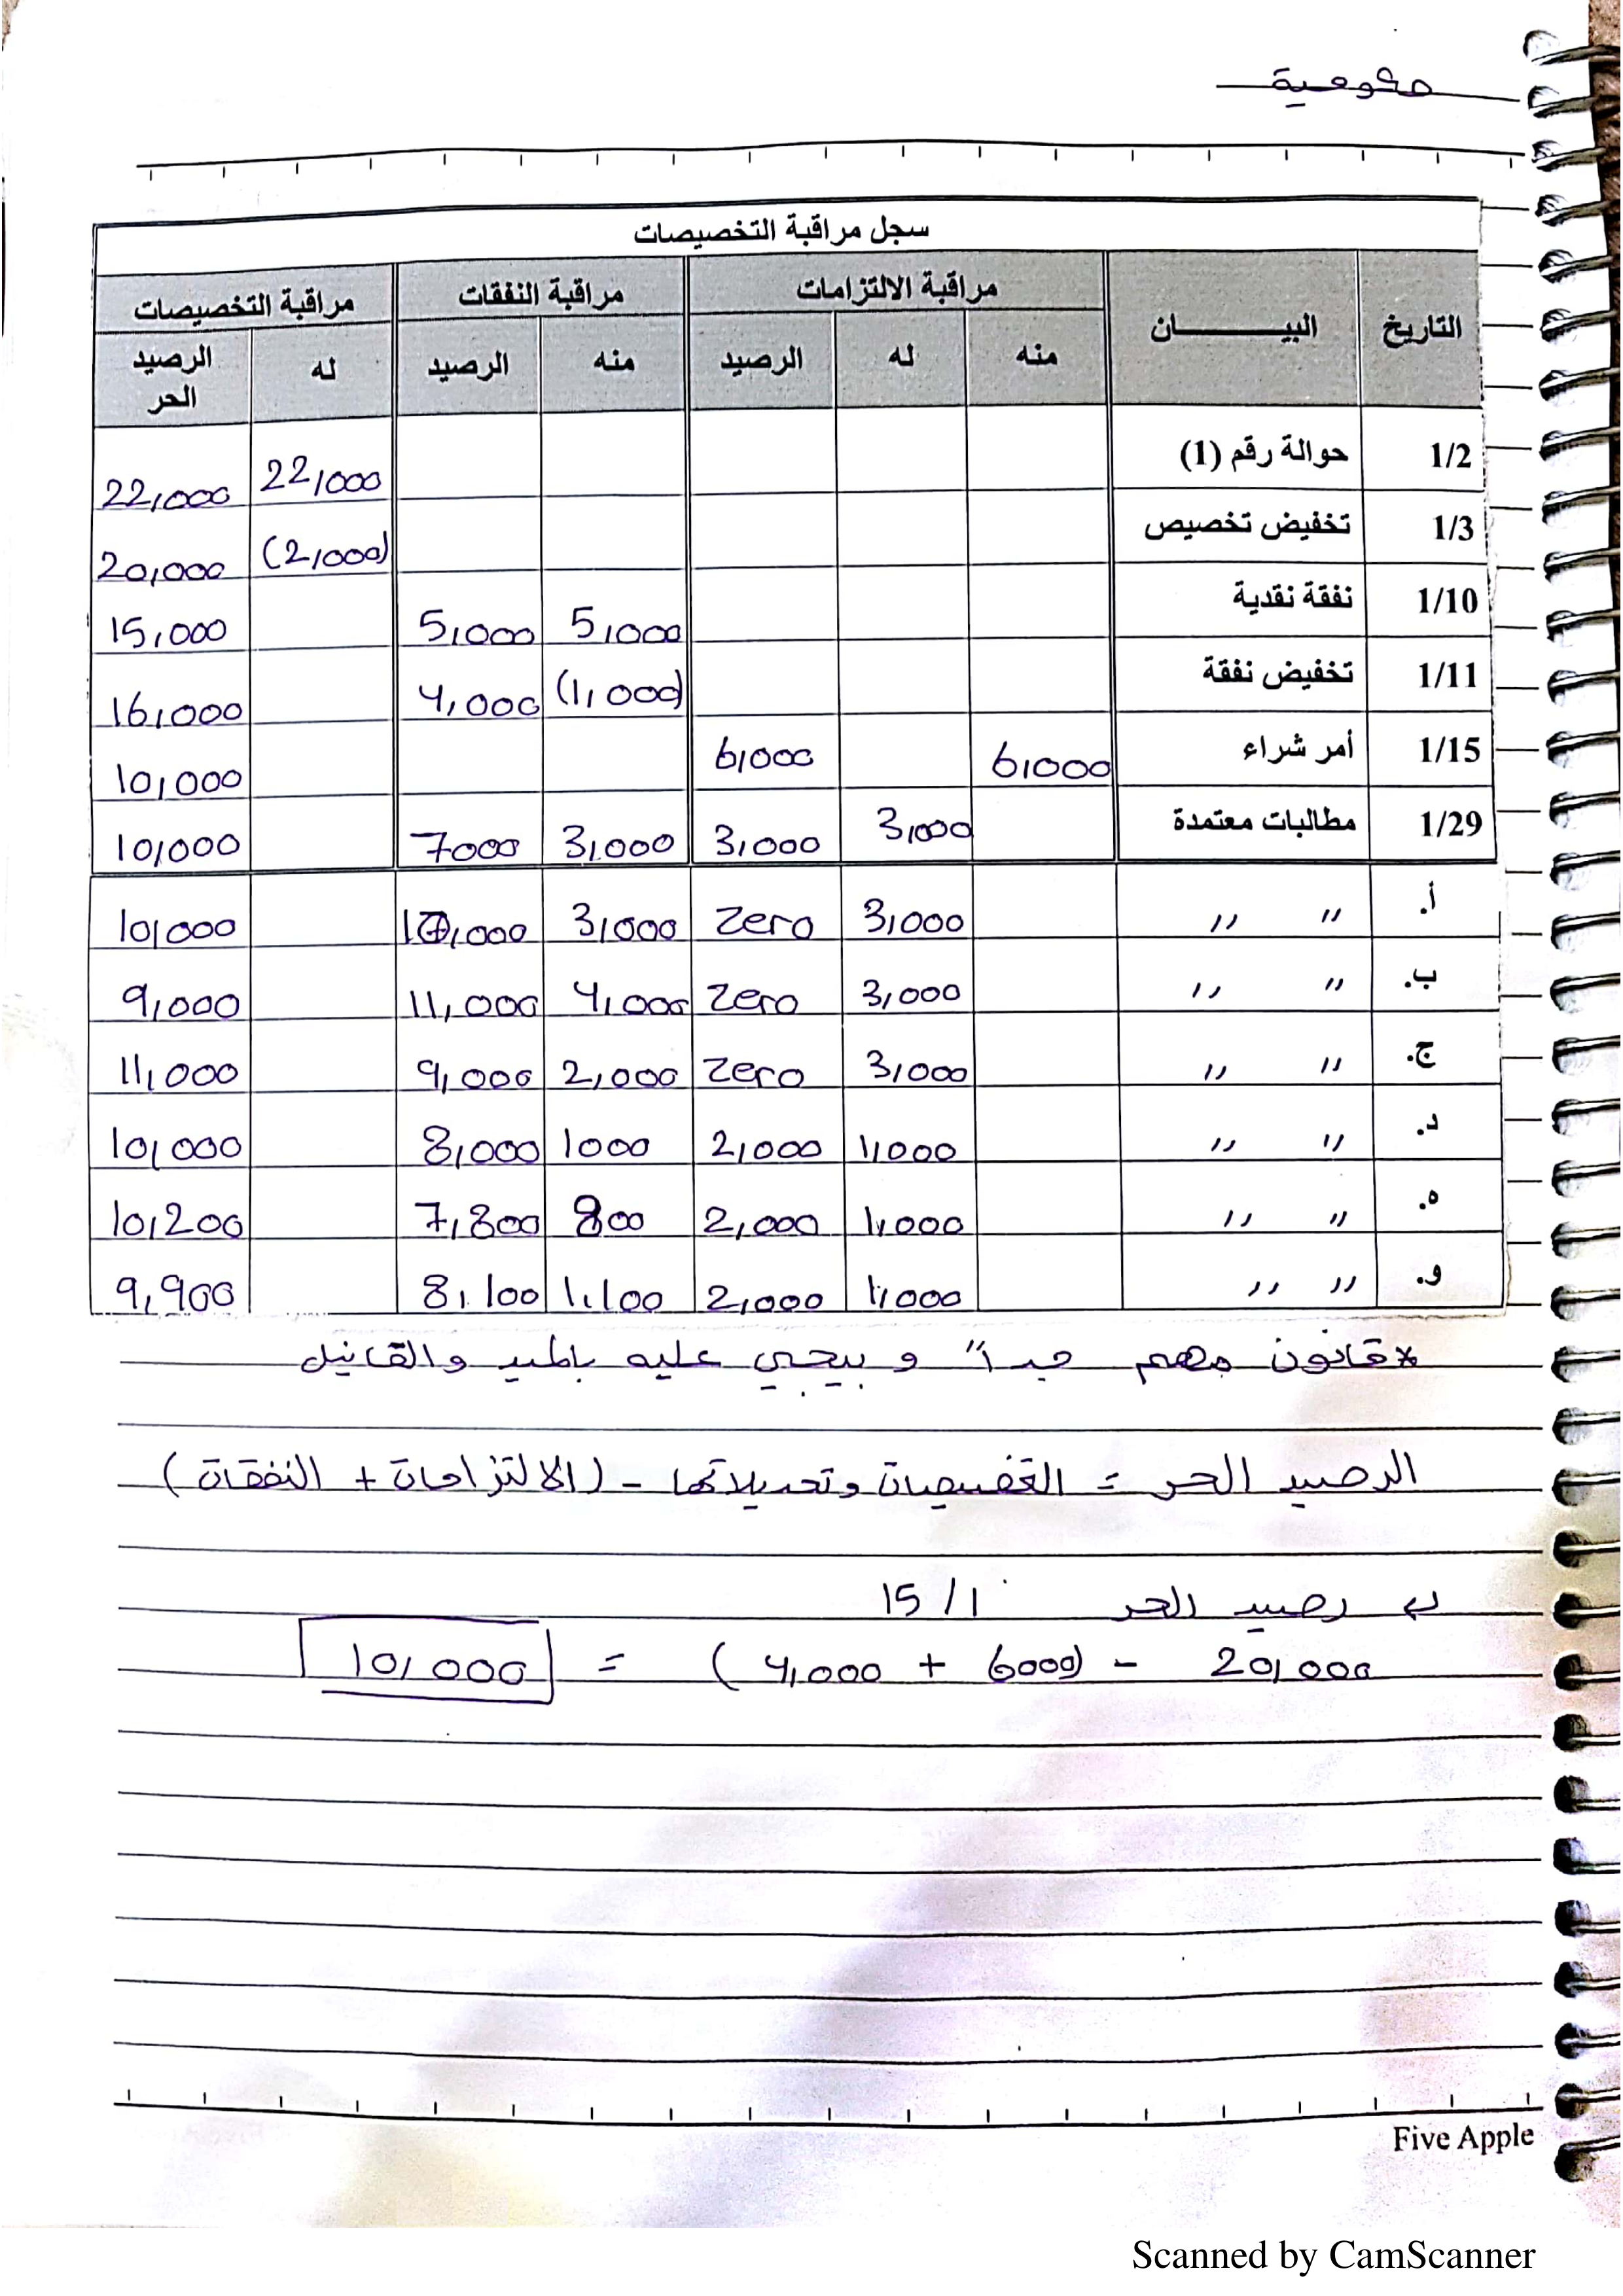 حكومية
سجل مراقبة التخصيصات
التاريخ البيـــــــان مراقبة الالتزامات مراقبة النفقات مراقبة التخصيصات
منه له الرصيد منه الرصيد له الرصيد الحر
1/2 حوالة رقم (1) 22,000 22,000
1/3 تخفيض تخصيص (2,000) 20,000
1/10 نفقة نقدية 5,000 5,000 15,000
1/11 تخفيض نفقة (1,000) 4,000 16,000
1/15 أمر شراء 6,000 6,000 10,000
1/29 مطالبات معتمدة 3,000 3,000 3,000 7000 10,000
أ. ,, ,, 3,000 zero 3,000 10,000 10,000
ب. ,, ,, 3,000 zero 4,000 11,000 9,000
ج. ,, ,, 3,000 zero 2,000 9,000 11,000
د. ,, ,, 1,000 2,000 1000 8,000 10,000
ه. ,, ,, 1,000 2,000 800 7,800 10,200
و. ,, ,, 1,000 2,000 1,100 8,100 9,900
* قانون مهم جداً وبيجي عليه بالميد والفاينل
الرصيد الحر = التخصيصات وتعديلاتها - (الالتزامات + النفقات)
رصيد الحر 15/1
20,000 - (6000 + 4,000) = 10,000
Five Apple
Scanned by CamScanner